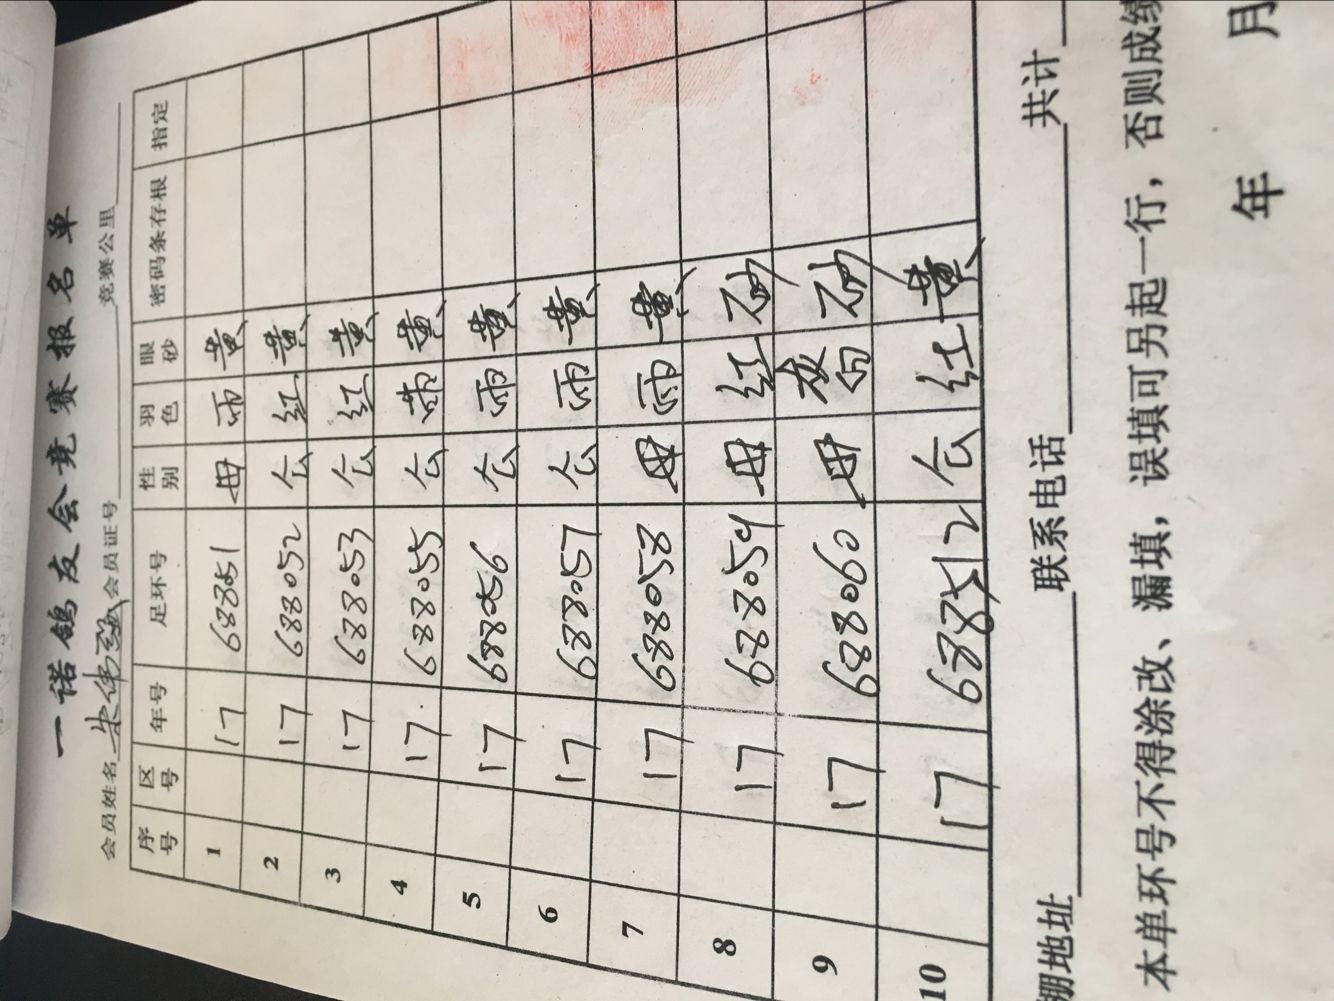 一诺鸽友会竞赛报名单
会员姓名 朱伟 会员证号 竞赛公里
序号 区号 年号 足环号 性别 羽色 眼砂 密码条存根 指定
1 17 688051 母 雨 黄
2 17 688052 公 红 黄
3 17 688053 公 红 黄
4 17 688055 公 雨 黄
5 17 688056 公 雨 黄
6 17 688057 公 雨 黄
7 17 688058 母 雨 黄
8 17 688059 母 红 砂
9 17 688060 母 灰白 砂
10 17 688512 公 红 黄
棚地址 联系电话 共计
本单环号不得涂改、漏填，误填可另起一行，否则成绩
年 月